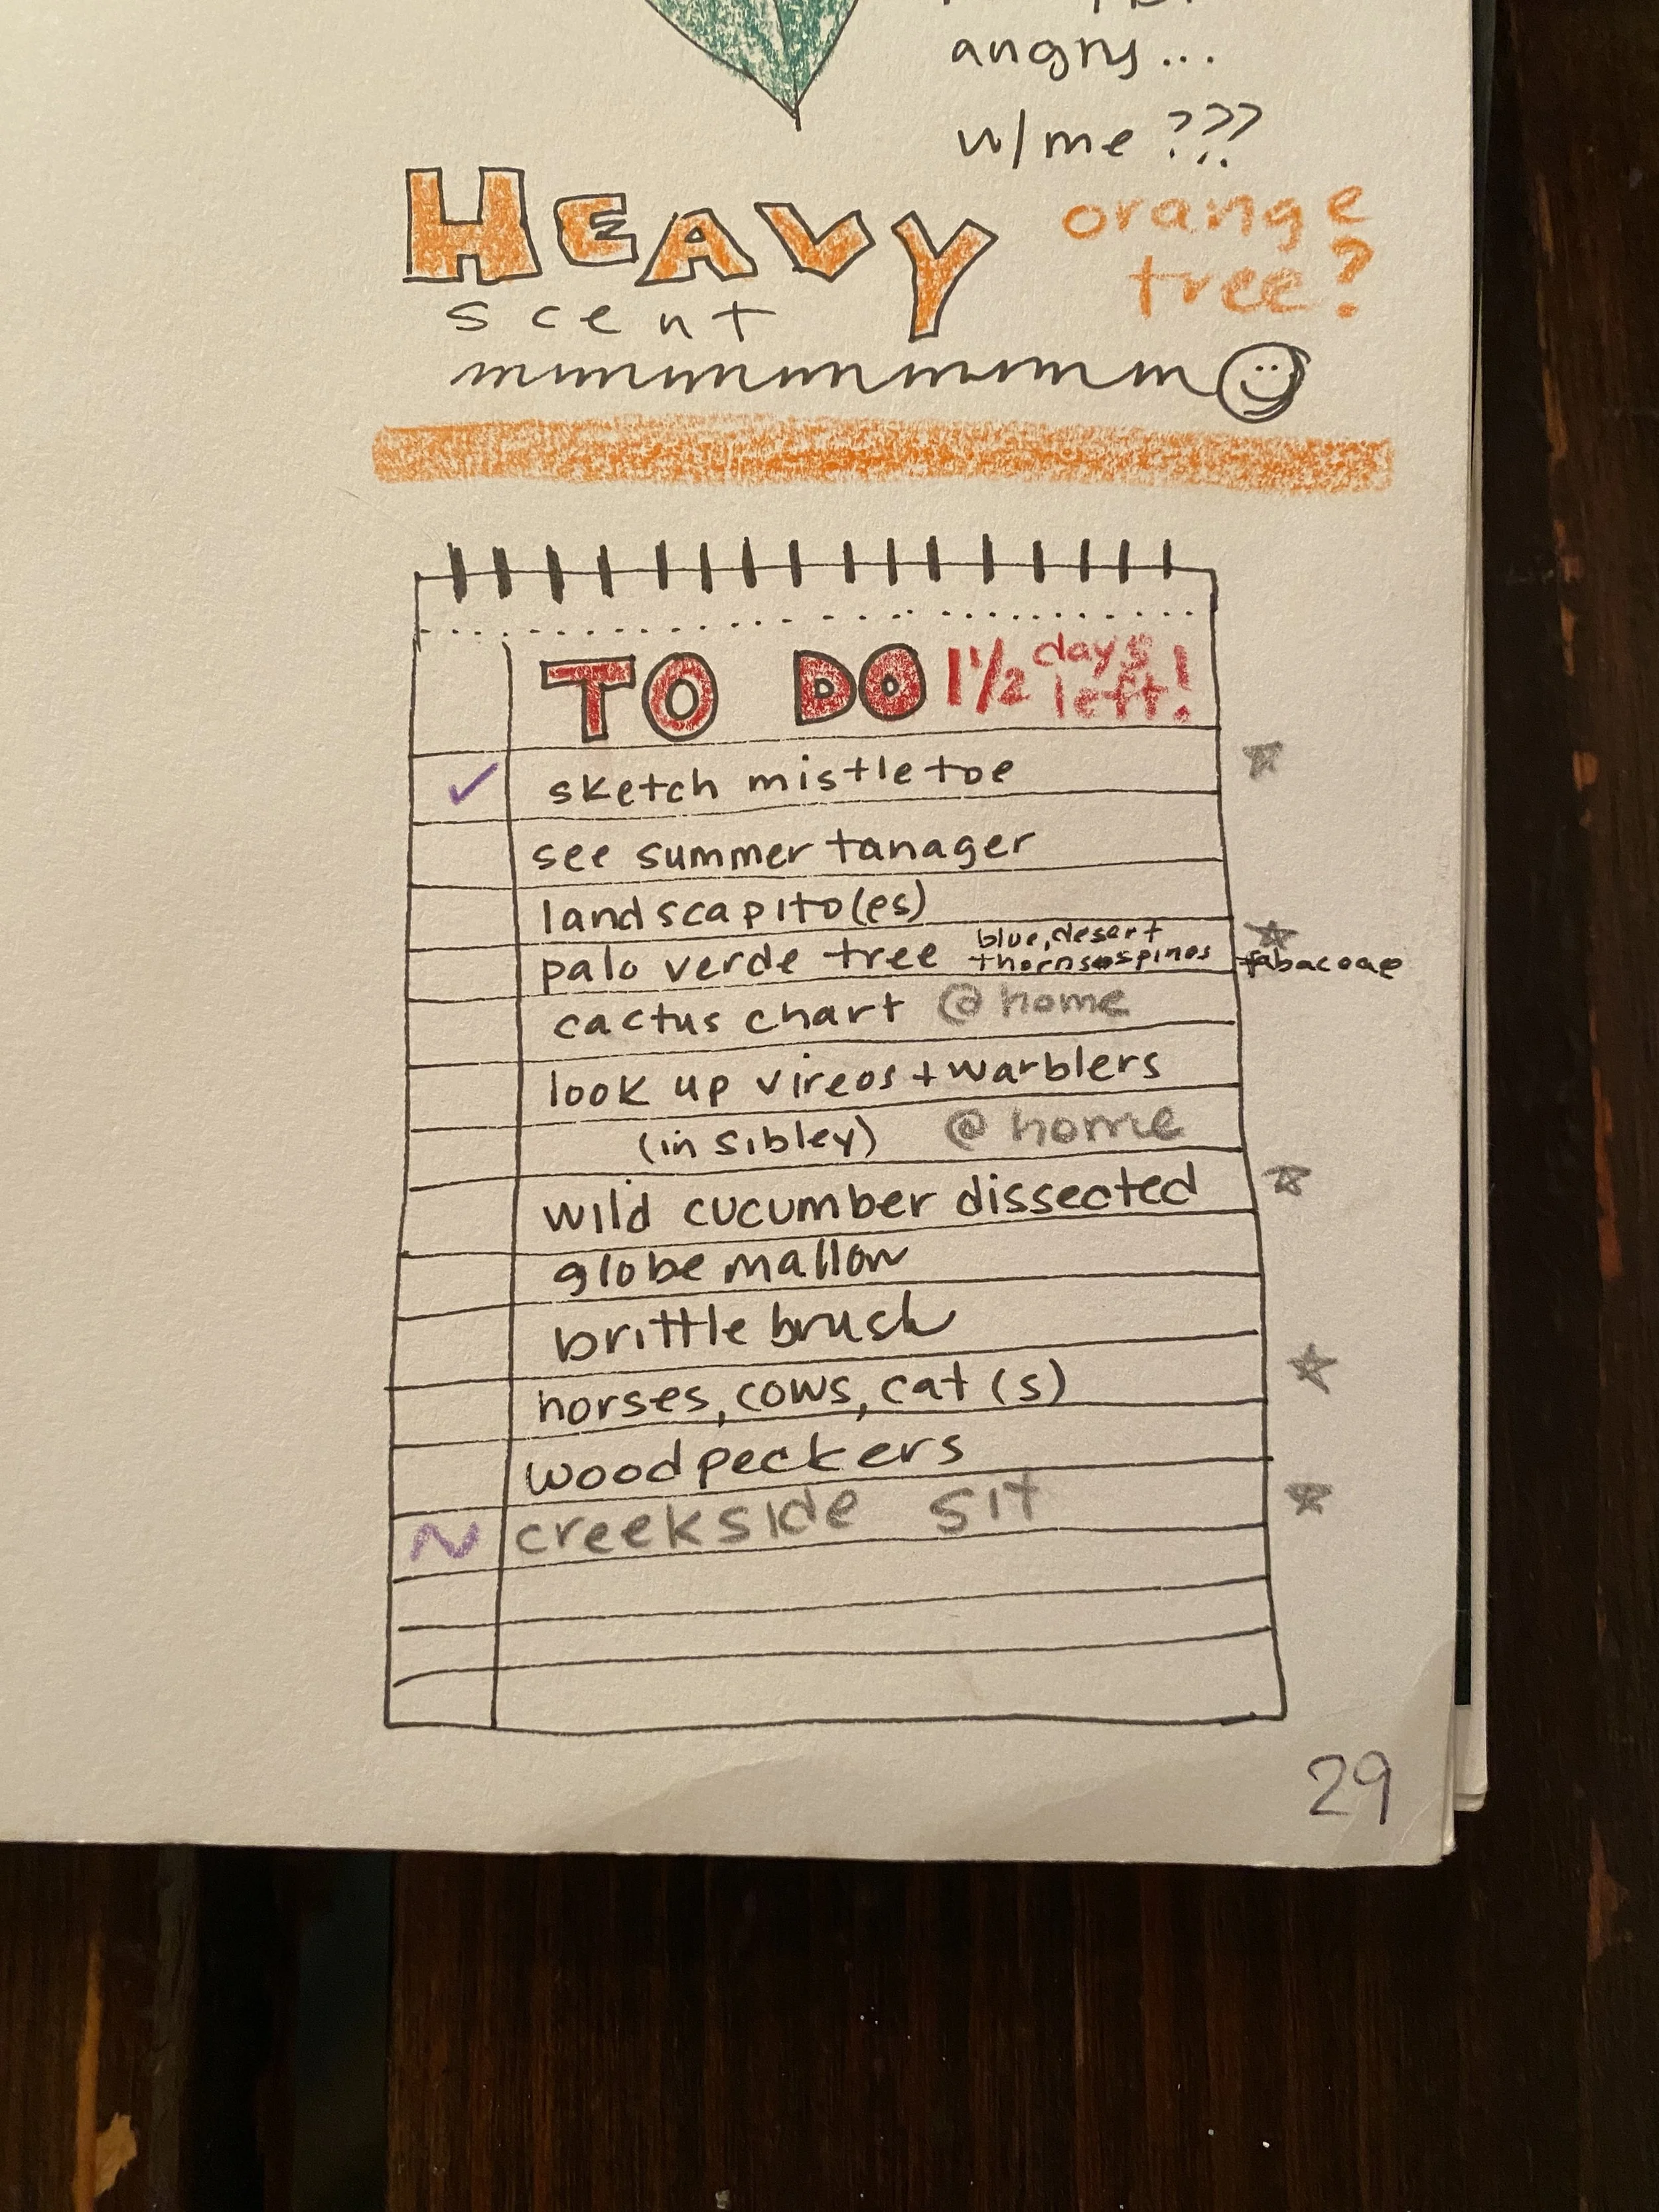 angry...
w/me ???
HEAVY
scent
orange
tree?
mmmmmmmmm
TO DO 1 1/2 days left!
✓ sketch mistletoe
see summer tanager
landscapito(es)
palo verde tree blue, desert
thorns spines fabaceae
cactus chart @ home
look up vireos + warblers
(in sibley) @ home
wild cucumber dissected
globe mallow
brittle brush
horses, cows, cat (s)
woodpeckers
~ creekside sit
29